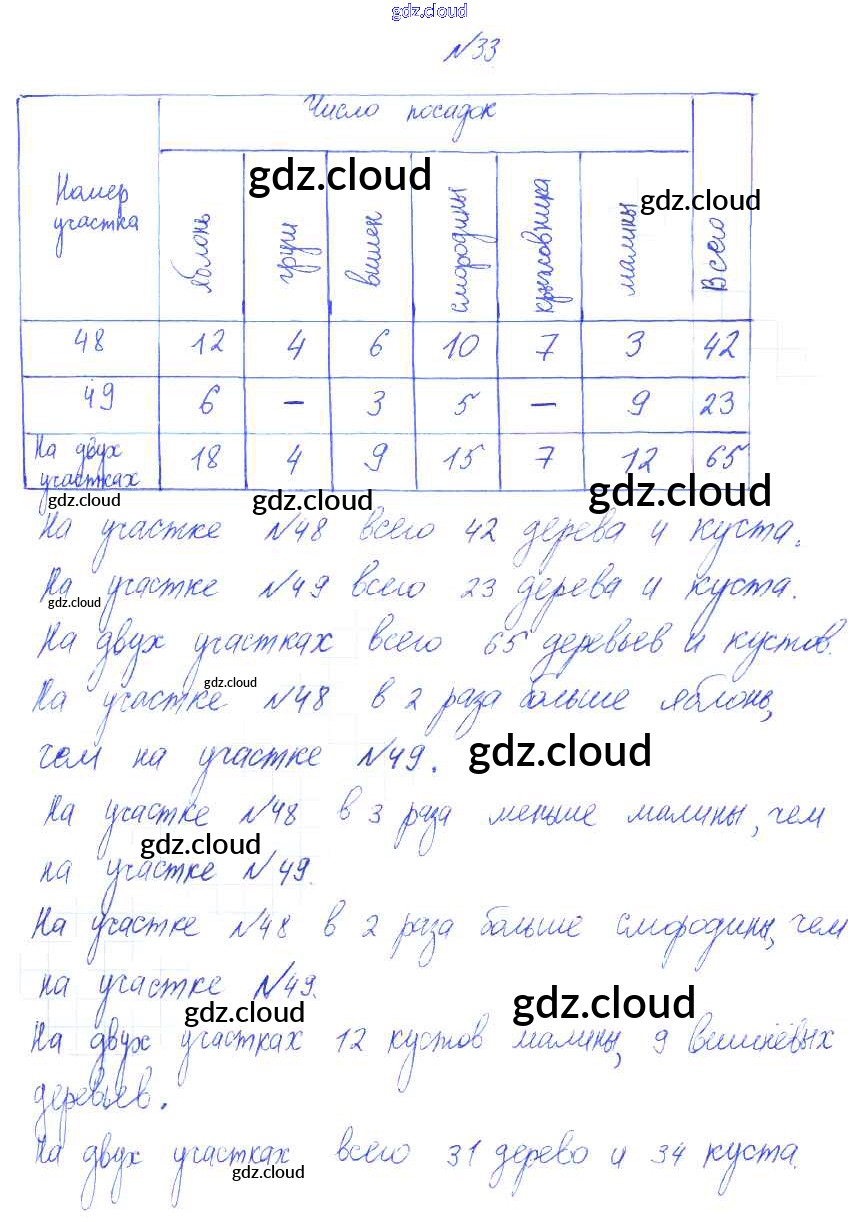 gdz.cloud
№33
Число посадок
gdz.cloud
gdz.cloud
Номер
участка
яблонь
груш
вишен
смородины
крыжовника
малины
Всего
48 12 4 6 10 7 3 42
49 6 – 3 5 – 9 23
На двух
участках 18 4 9 15 7 12 65
gdz.cloud gdz.cloud gdz.cloud
На участке №48 всего 42 дерева и куста.
На участке №49 всего 23 дерева и куста.
gdz.cloud
На двух участках всего 65 деревьев и кустов.
gdz.cloud
На участке №48 в 2 раза больше яблонь,
чем на участке №49. gdz.cloud
На участке №48 в 3 раза меньше малины, чем
gdz.cloud
на участке №49.
На участке №48 в 2 раза больше смородины, чем
на участке №49.
gdz.cloud gdz.cloud
На двух участках 12 кустов малины, 9 вишнёвых
деревьев.
На двух участках всего 31 дерево и 34 куста.
gdz.cloud